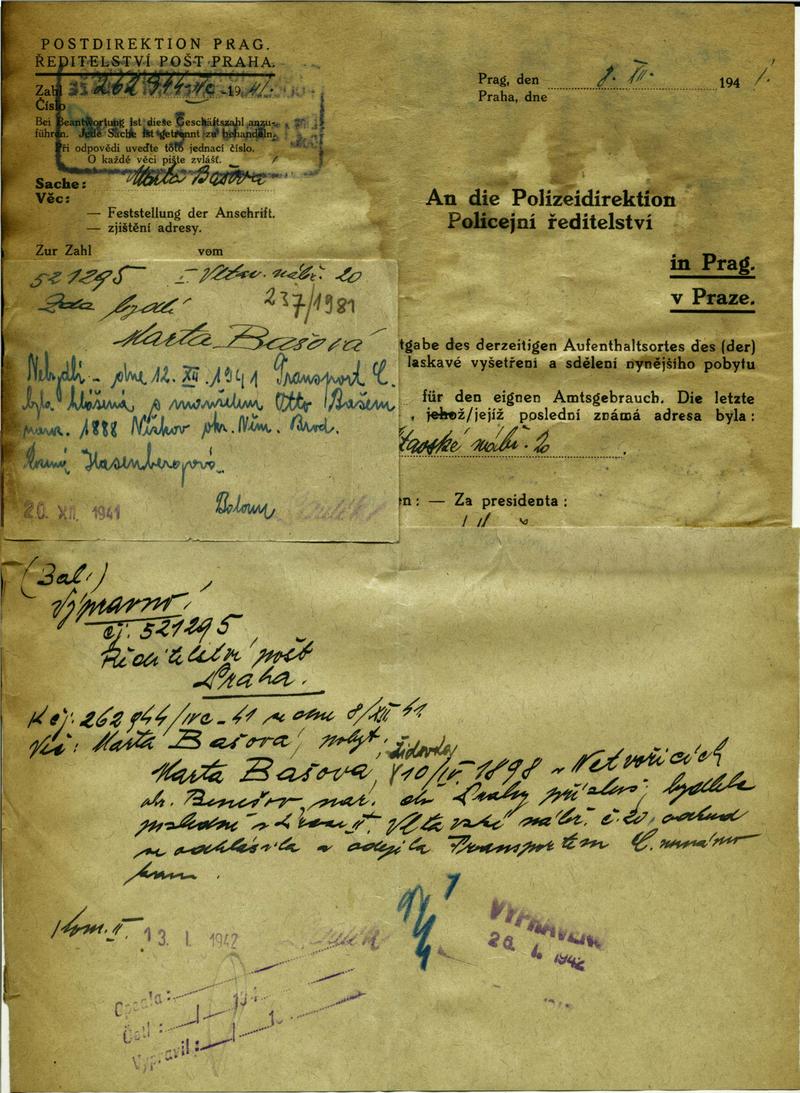 POSTDIREKTION PRAG.
ŘEDITELSTVÍ POŠT PRAHA.
Zahl 262 944-IVc -19 41.
Číslo
Bei Beantwortung ist diese Geschäftszahl anzu-
führen. Jede Sache ist getrennt zu behandeln.
Při odpovědi uveďte toto jednací číslo.
O každé věci pište zvlášť.
Sache: Marta Bašová
Věc:
— Feststellung der Anschrift.
— zjištění adresy.
Zur Zahl vom
Prag, den 8. XII. 194 1.
Praha, dne
An die Polizeidirektion
Policejní ředitelství
in Prag.
v Praze.
tgabe des derzeitigen Aufenthaltsortes des (der)
laskavé vyšetření a sdělení nynějšího pobytu
für den eignen Amtsgebrauch. Die letzte
, jehož/jejíž poslední známá adresa byla:
tavské nábř. 20
en: — Za presidenta:
521295 I Vltav. nábř. 20
Zda bydlí 237/1981
Marta Bašová
Nebydlí – dne 12. XII. 1941 Transport C.
byla hlášena s manželem Otto Bašem
naroz. 1888 Nížkov okr. Něm. Brod.
Hasenbergová.
20. XII. 1941
(Bal.)
Výpravno!
čj. 521295
Ředitelství pošt
Praha.
K čj. 262944/IVc-41 ze dne 8/XII 41.
Věc: Marta Bašová, pobyt.
židovka
Marta Bašová, 10/IV. 1898 v Netvořicích
okr. Benešov, nár. do Prahy přísluš., bydlela
posledně v Praze II. Vltavské nábř. č. 20, odkud
se odhlásila a odejela Transportem C. neznámo
kam.
13. I. 1942
VYPRAVENO
26. I. 1942
Opsala:
Četl: 194
Vypravil: